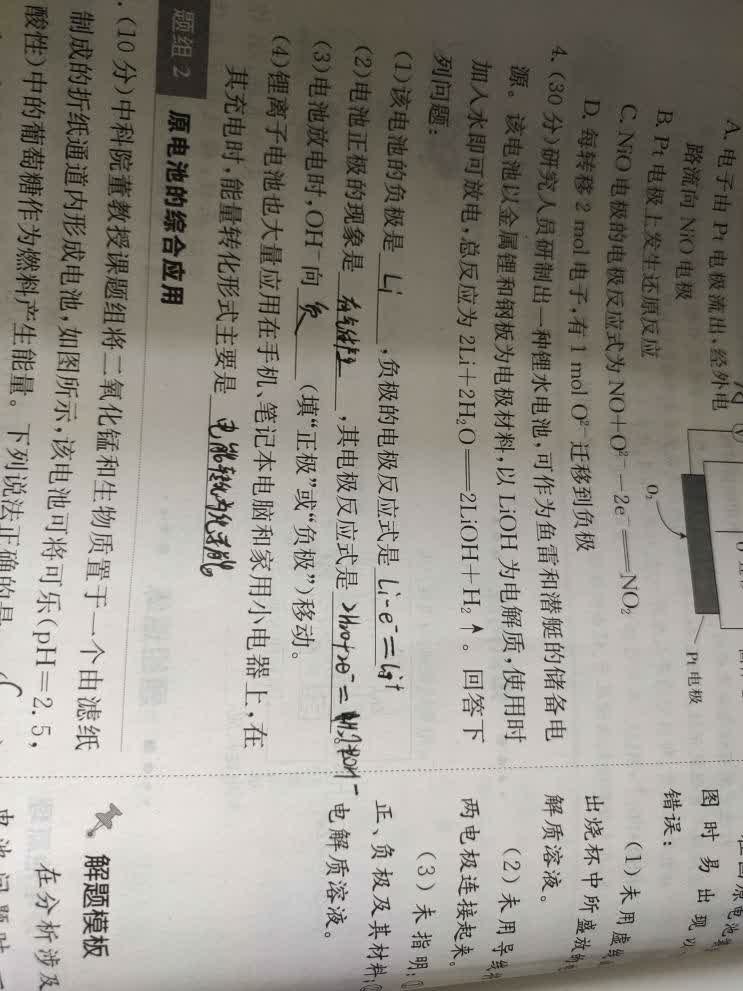 A. 电子由 Pt 电极流出,经外电
路流向 NiO 电极
B. Pt 电极上发生还原反应
C. NiO 电极的电极反应式为 NO+O²⁻-2e⁻══NO₂
D. 每转移 2 mol 电子,有 1 mol O²⁻迁移到负极
O₂
Pt 电极
4. (30 分)研究人员研制出一种锂水电池,可作为鱼雷和潜艇的储备电
源。该电池以金属锂和钢板为电极材料,以 LiOH 为电解质,使用时
加入水即可放电,总反应为 2Li+2H₂O══2LiOH+H₂↑。回答下
列问题:
(1)该电池的负极是 Li ,负极的电极反应式是 Li-e⁻=Li⁺
(2)电池正极的现象是 有气体 ,其电极反应式是 2H₂O+2e⁻= OH⁻ 。
(3)电池放电时,OH⁻向 负 (填“正极”或“负极”)移动。
(4)锂离子电池也大量应用在手机、笔记本电脑和家用小电器上,在
其充电时,能量转化形式主要是 电能转化为化学能。
题组 2 原电池的综合应用
. (10 分)中科院董教授课题组将二氧化锰和生物质置于一个由滤纸
制成的折纸通道内形成电池,如图所示,该电池可将可乐(pH=2.5,
酸性)中的葡萄糖作为燃料产生能量。下列说法正确的是
图时易出现以
错误:
(1)未用虚线
出烧杯中所盛放的
解质溶液。
(2)未用导线
两电极连接起来。
(3)未指明:①
正、负极及其材料;②
电解质溶液。
解题模板
在分析涉及